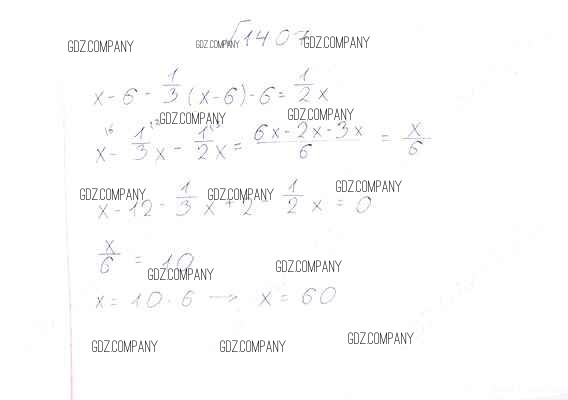 √14.07
GDZ.COMPANY GDZ.COMPANY GDZ.COMPANY
x - 6 - 1/3 (x - 6) - 6 = 1/2 x
GDZ.COMPANY GDZ.COMPANY
x - 1/3 x - 1/2 x = 6x - 2x - 3x / 6 = x/6
GDZ.COMPANY GDZ.COMPANY GDZ.COMPANY
x - 12 - 1/3 x + 2 - 1/2 x = 0
x/6 = 10
GDZ.COMPANY GDZ.COMPANY
x = 10 · 6 → x = 60
GDZ.COMPANY GDZ.COMPANY GDZ.COMPANY